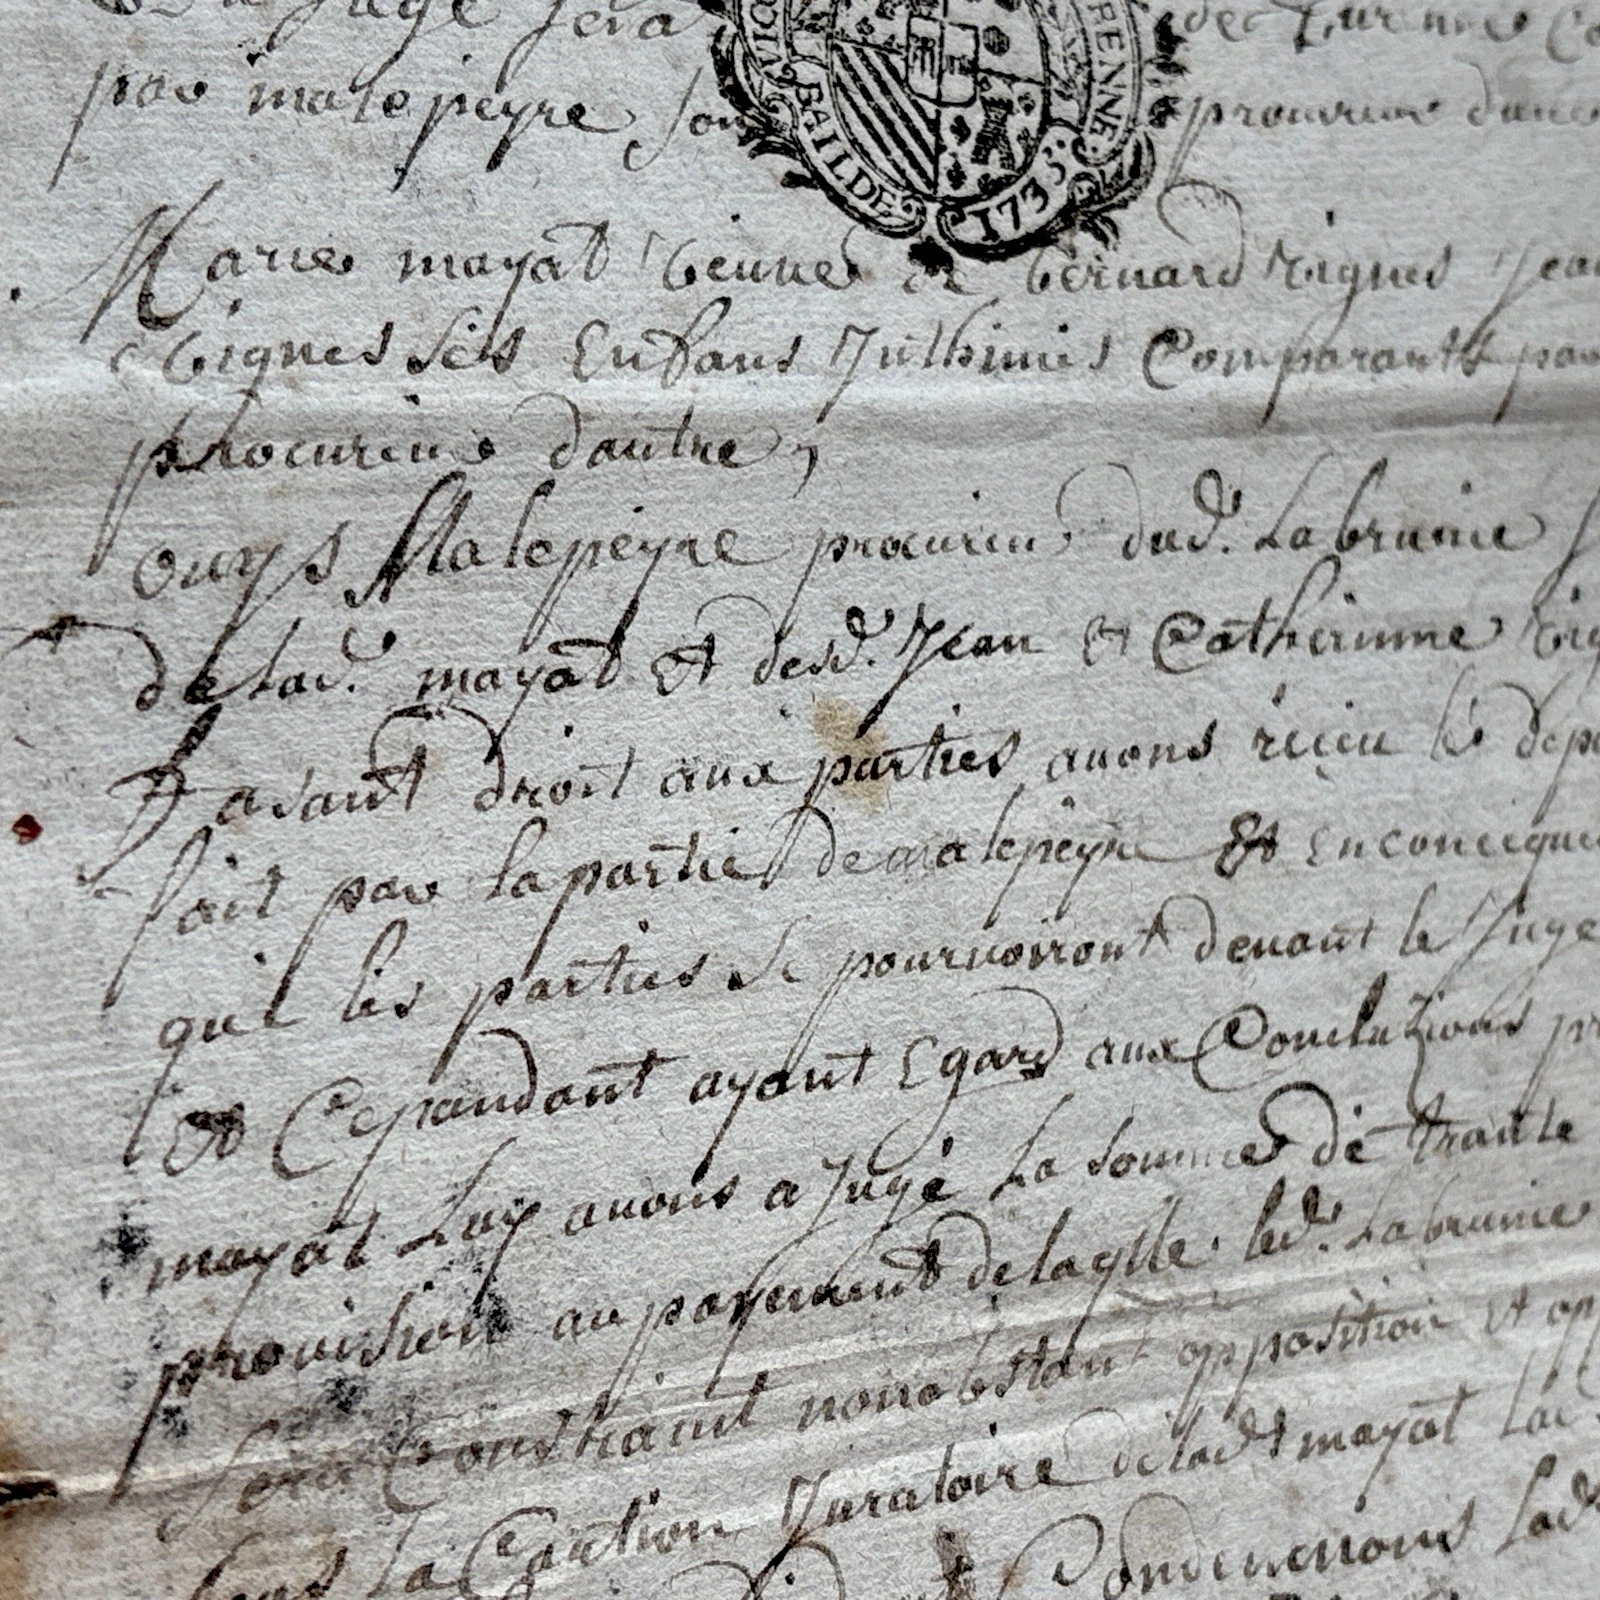 juge sera
VICO RENNE BAILDE 1735
par malepeyre son procureur dune
Marie mayat veuve de bernard vignes Jean
vignes ses Enfans Inthimés Comparants par
procureur dautre,
ouys Malepeyre procureur dud. Labrunie
de lad. mayat et desd. Jean et Catherinne vig
Faisant droit aux parties avons reçeu le depa
fait par la partie de malepeyre et enconcequa
que les parties se pourvoiront devant le Juge
et Cepandant ayant Egard aux Concluzions pr
mayat Luy avons ajugé La somme de trante
provision au payement de laqlle led. Labrunie
sera Constraint nonobstant opposition et app
sous La Caution Juratoire de lad. mayat
Condemnons lad.